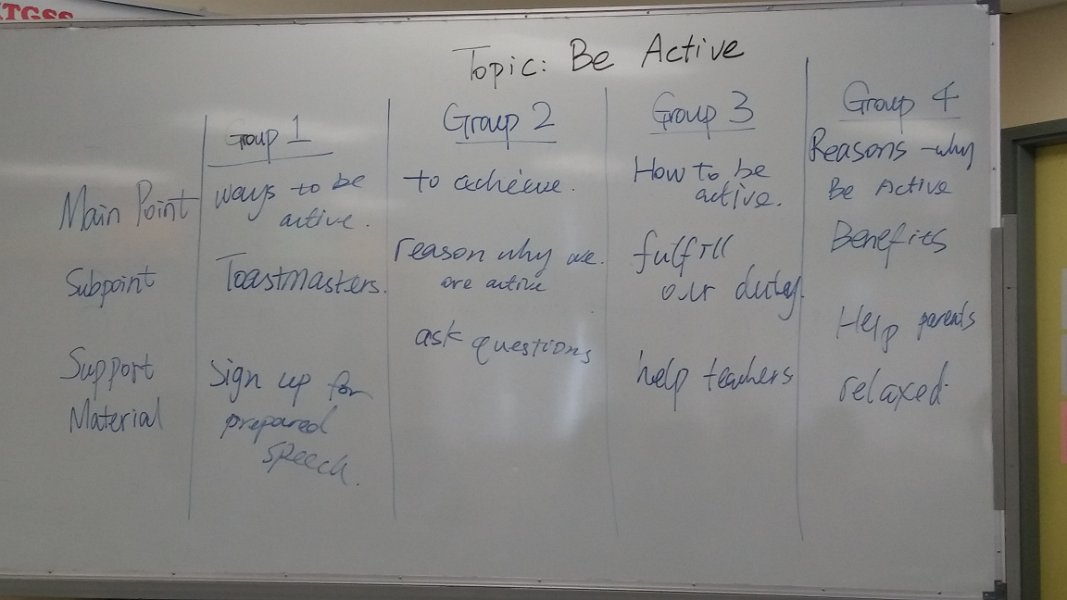 TGSS
Topic: Be Active
Group 1
Group 2
Group 3
Group 4
Main Point
ways to be
active.
to achieve.
How to be
active.
Reasons - why
Be Active
Subpoint
Toastmasters.
reason why we
are active
fulfill
our duty.
Benefits
Support
Material
Sign up for
prepared
speech.
ask questions
help teachers
Help parents
relaxed.